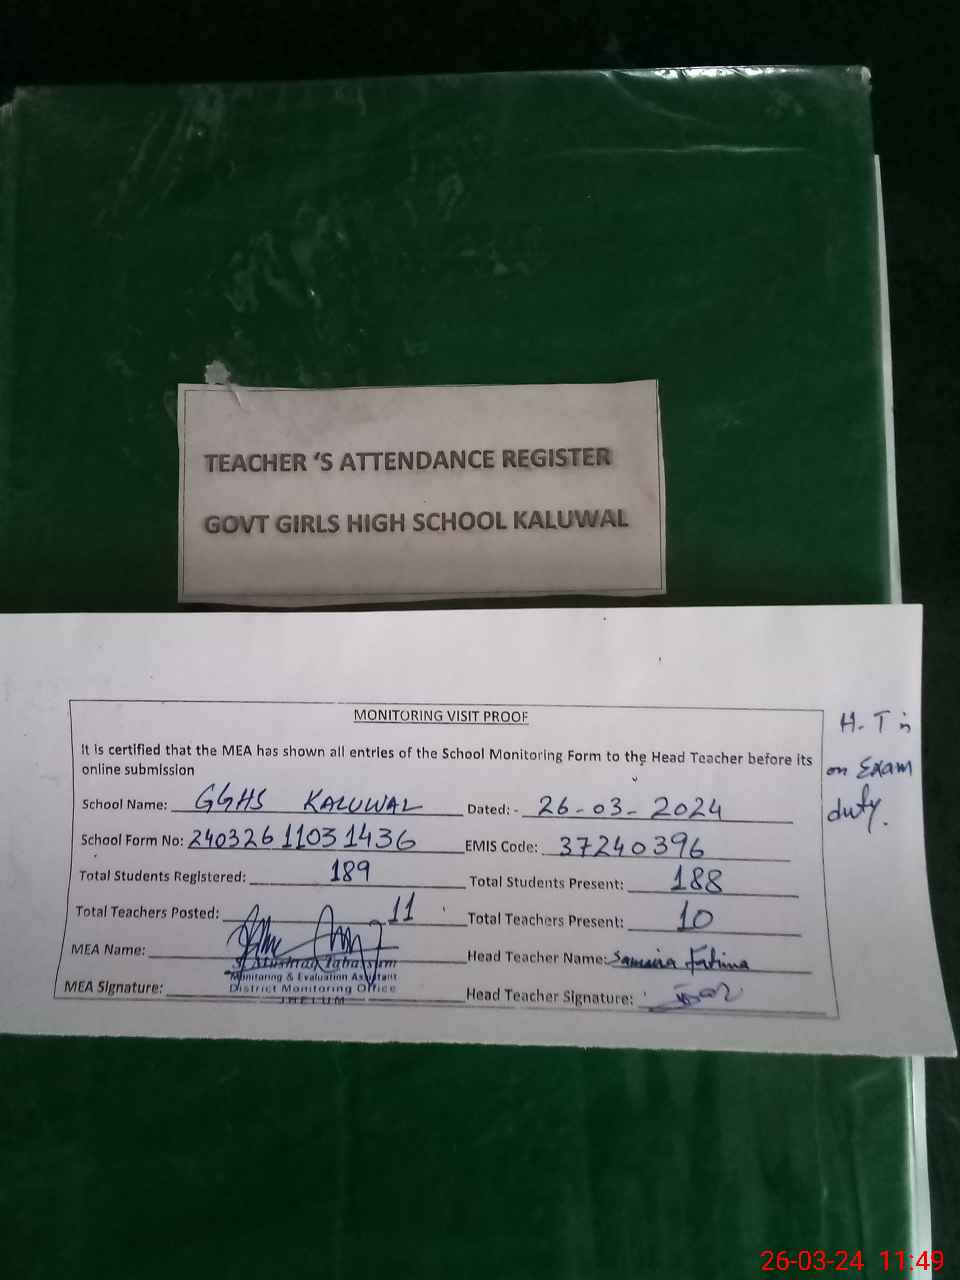 TEACHER 'S ATTENDANCE REGISTER
GOVT GIRLS HIGH SCHOOL KALUWAL
MONITORING VISIT PROOF
It is certified that the MEA has shown all entries of the School Monitoring Form to the Head Teacher before its
online submission
School Name: GGHS KALUWAL Dated: - 26-03-2024
School Form No: 240326 11031436 EMIS Code: 37240396
Total Students Registered: 189 Total Students Present: 188
Total Teachers Posted: 11 Total Teachers Present: 10
MEA Name: Head Teacher Name: Samaira Fatima
Monitoring & Evaluation Assistant
District Monitoring Office
JHELUM
MEA Signature: Head Teacher Signature:
H.T is
on Exam
duty.
26-03-24 11:49